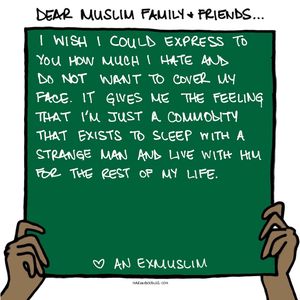 DEAR MUSLIM FAMILY + FRIENDS...
I WISH I COULD EXPRESS TO
YOU HOW MUCH I HATE AND
DO NOT WANT TO COVER MY
FACE. IT GIVES ME THE FEELING
THAT I'M JUST A COMMODITY
THAT EXISTS TO SLEEP WITH A
STRANGE MAN AND LIVE WITH HIM
FOR THE REST OF MY LIFE.
♡ AN EXMUSLIM